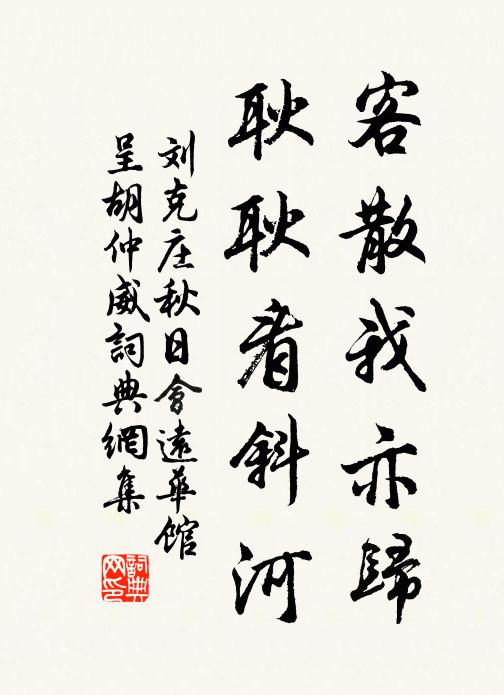 客散我亦歸
耿耿看斜河
刘克庄秋日會遠華館
呈胡仲威詞典網集
詞典
网印